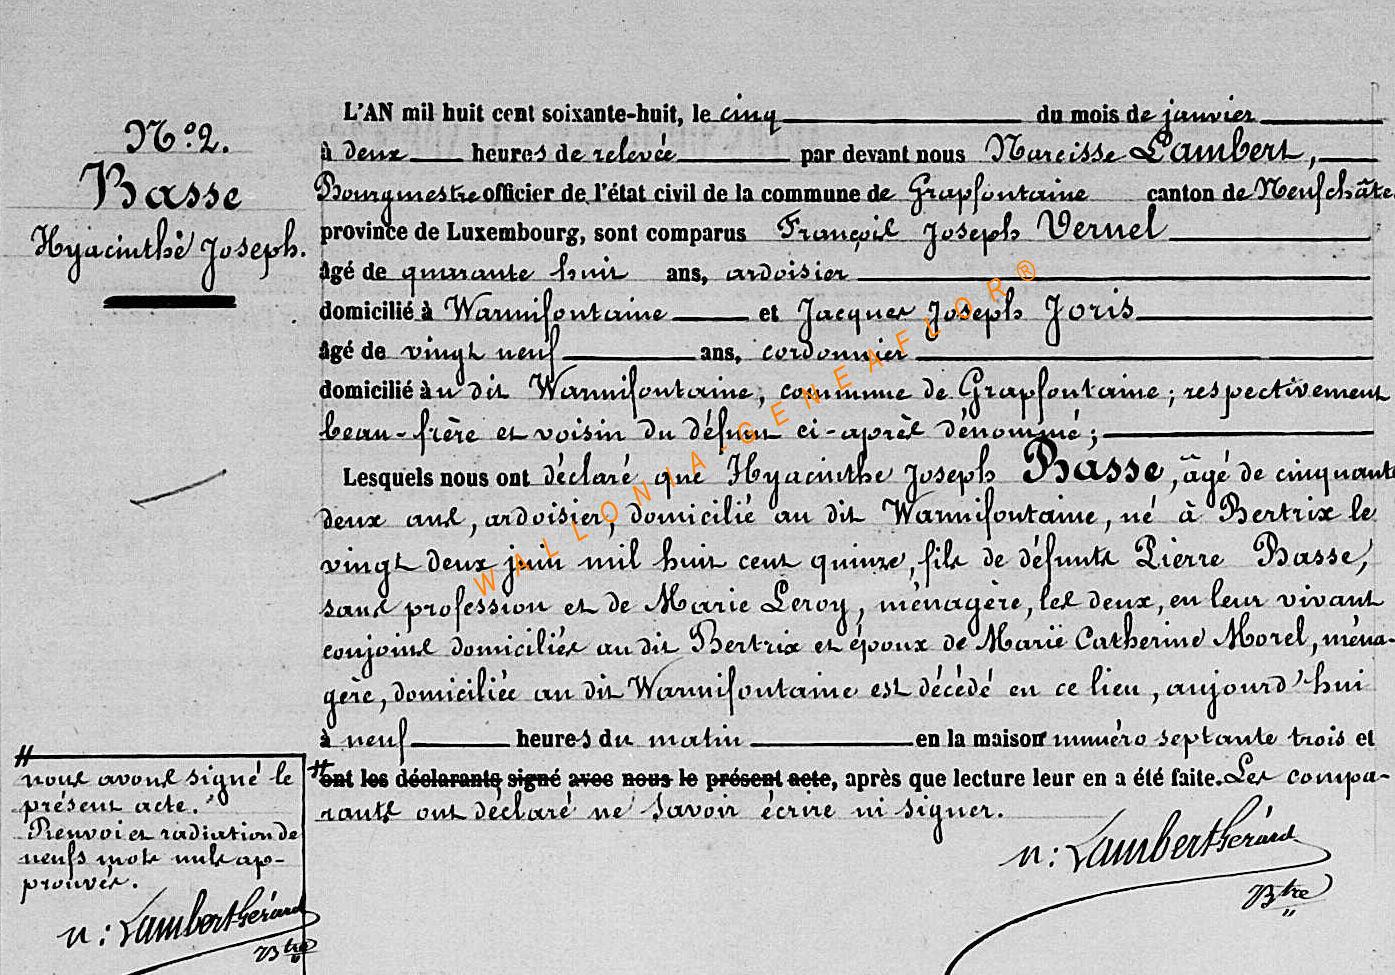 N.º 2.
Basse
Hyacinthe Joseph.
L'AN mil huit cent soixante-huit, le cinq du mois de janvier
à deux heures de relevée par devant nous Narcisse Lambert,
Bourgmestre officier de l'état civil de la commune de Grapfontaine canton de Neufchâte
province de Luxembourg, sont comparus François Joseph Vernel
âgé de quarante huit ans, ardoisier
domicilié à Warmifontaine et Jacques Joseph Joris
âgé de vingt neuf ans, cordonnier
domicilié au dit Warmifontaine, commune de Grapfontaine ; respectivement
beau-frère et voisin du défunt ci-après dénommé ;
Lesquels nous ont déclaré que Hyacinthe Joseph Basse, âgé de cinquante
deux ans, ardoisier, domicilié au dit Warmifontaine, né à Bertrix le
vingt deux juin mil huit cent quinze, fils de défunts Pierre Basse,
sans profession et de Marie Leroy, ménagère, les deux, en leur vivant
conjoins domiciliés au dit Bertrix et époux de Marie Catherine Morel, ména-
gère, domiciliée au dit Warmifontaine est décédé en ce lieu, aujourd'hui
à neuf heures du matin en la maison numéro septante trois et
# ont les déclarants signé avec nous le présent acte, après que lecture leur en a été faite. Les compa-
rants ont déclaré ne savoir écrire ni signer.
n : Lambert Gérard
Btre
#
nous avons signé le
présent acte.
Renvoi et radiation de
neufs mots nuls ap-
prouvés.
n : Lambert Gérard
Btre
WALLONIA-GENEAFLOR®